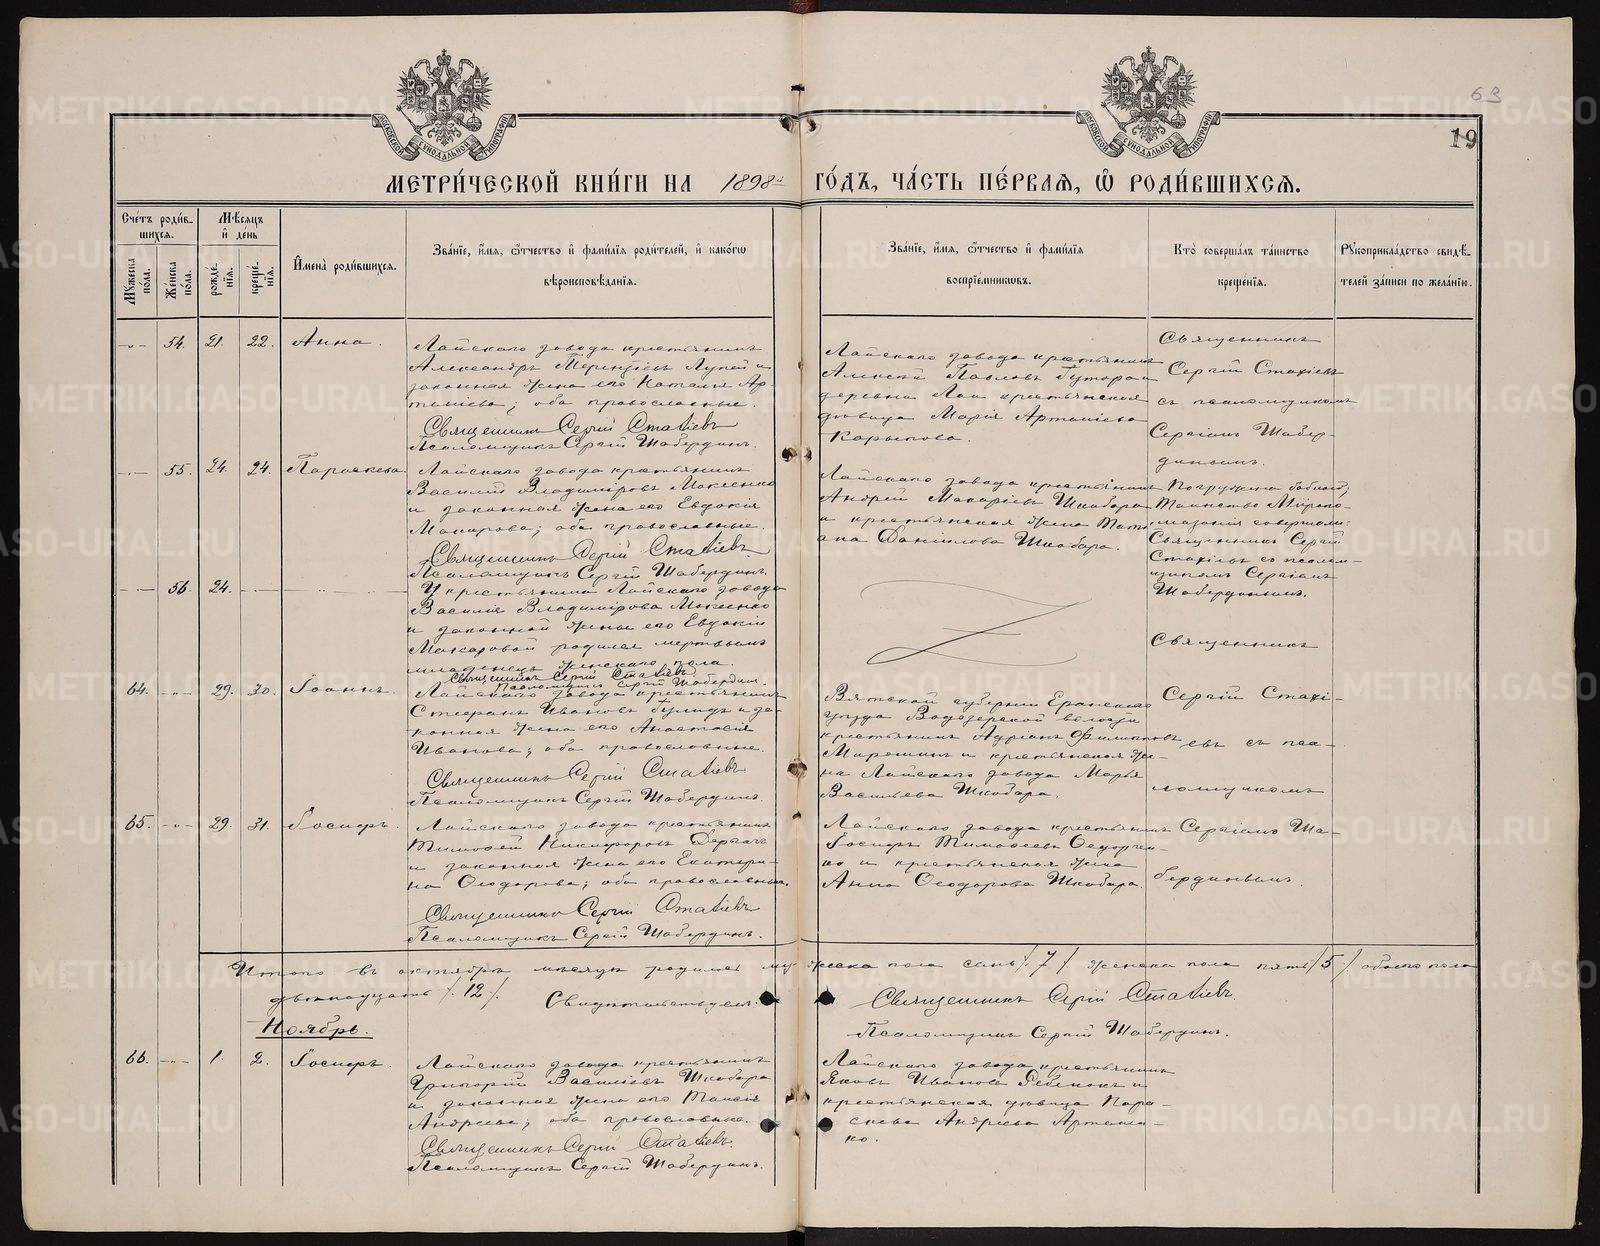 63
19
МЕТРИ́ЧЕСКОЙ КНИ́ГИ НА 1898й ГО́ДЪ, ЧА́СТЬ ПЕ́РВАЯ, Ѡ РОДИ́ВШИХСЯ.
Сче́тъ роди́в-
шихся.
Му́жеска по́ла.
Же́нска по́ла.
Мѣ́сяцъ и де́нь
рожде́-
нія.
креще́-
нія.
Имена̀ роди́вшихся.
Зва́ніе, и́мя, ѻ́тчество и фами́лія роди́телей, и како́гѡ
вѣроисповѣ́данія.
Зва́ніе, и́мя, ѻ́тчество и фами́лія
воспріе́мниковъ.
Кто̀ соверша́лъ та́инство
креще́нія.
Рукоприкла́дство свидѣ́-
телей за́писи по жела́нію.
-„- 54. 21. 22. Анна.
Лайскаго завода крестьянинъ
Александръ Лупей и
законная жена его Наталия Ар-
оба православные.
Священникъ Сергій Стахіевъ
Псаломщикъ Сергій Шабердинъ.
Лайскаго завода крестьянинъ
Алексѣй Павловъ
деревни Лаи крестьянская
дѣвица Марія
Священникъ
Сергій Стахіевъ
съ псаломщикомъ
Сергіемъ Шабер-
динымъ.
-„- 55. 24. 24. Параскева
Лайскаго завода крестьянинъ
Василій Владиміровъ Макеенко
и законная жена его Евдокія
Макарова; оба православные.
Священникъ Сергій Стахіевъ
Псаломщикъ Сергій Шабердинъ.
Лайскаго завода крестьянинъ
Андрей Макаріевъ Шкабара
и крестьянская жена Тать-
ана Даніилова Шкабара.
Погружена бабкой;
Таинство Мѵропо-
мазанія совершали:
Священникъ Сергій
Стахіевъ съ псалом-
щикомъ Сергіемъ
Шабердинымъ.
-„- 56. 24.
У крестьянина Лайскаго завода
Василія Владимірова Макеенко
и законной жены его Евдокіи
Макаровой родился мертвымъ
младенецъ женскаго пола.
Священникъ Сергій Стахіевъ
Псаломщикъ Сергій Шабердинъ.
Священникъ
64. -„- 29. 30. Іоаннъ.
Лайскаго завода крестьянинъ
Стефанъ Ивановъ и за-
конная жена его Анастасія
Иванова; оба православные.
Священникъ Сергій Стахіевъ
Псаломщикъ Сергій Шабердинъ.
Вятской губерніи Яранскаго
уѣзда волости
крестьянинъ Адріанъ Филипповъ
и крестьянская же-
на Лайскаго завода Марья
Васильева Шкабара.
Сергій Стахі-
евъ съ пса-
ломщикомъ
65. -„- 29. 31. Іосифъ.
Лайскаго завода крестьянинъ
Тимоѳей Никифоровъ
и законная жена его Екатери-
на Ѳеодорова; оба православные.
Священникъ Сергій Стахіевъ
Псаломщикъ Сергій Шабердинъ.
Лайскаго завода крестьянинъ
Іосифъ Тимоѳеевъ
и крестьянская жена
Анна Ѳеодорова Шкабара.
Сергіемъ Ша-
бердинымъ.
Итого въ октябрѣ мѣсяцѣ родилось мужеска пола семь /7/ женска пола пять /5/ обоего пола
двѣнадцать /12/. Свидѣтельствуемъ: Священникъ Сергій Стахіевъ.
Псаломщикъ Сергій Шабердинъ.
Ноябрь.
66. -„- 1. 2. Іосифъ.
Лайскаго завода крестьянинъ
Григорій Василіевъ Шкабара
и законная жена его Таисія
Андреева; оба православные.
Священникъ Сергій Стахіевъ.
Псаломщикъ Сергій Шабердинъ.
Лайскаго завода крестьянинъ
Яковъ Ивановъ Ребенокъ и
крестьянская дѣвица Пара-
скева Андреева
ко.
METRIKI.GASO-URAL.RU